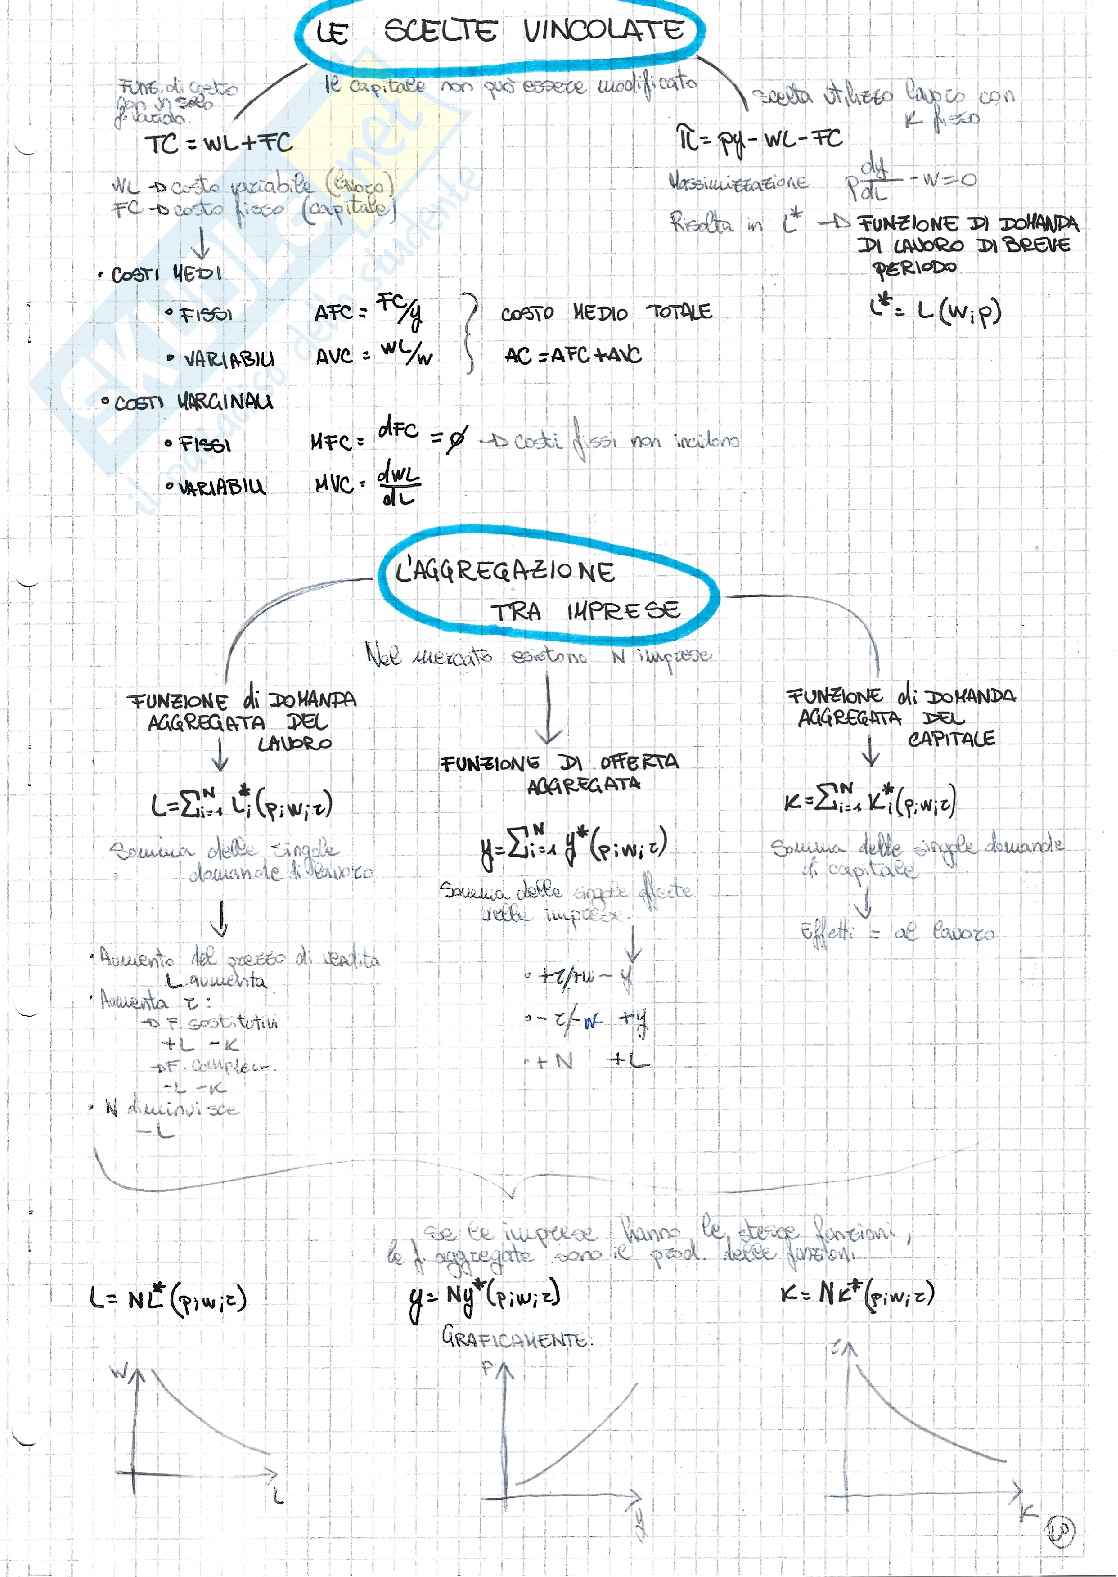 LE SCELTE VINCOLATE
Il capitale non può essere modificato
FUNZ. di costo
con un solo
f. variab.
TC = wL + FC
WL → costo variabile (lavoro)
FC → costo fisso (capitale)
• COSTI MEDI
• FISSI AFC = FC/y
• VARIABILI AVC = WL/w
COSTO MEDIO TOTALE
AC = AFC + AVC
• COSTI MARGINALI
• FISSI MFC = dFC = ∅ → costi fissi non incidono
• VARIABILI MVC = dWL/dL
scelta utilizzo lavoro con
K fisso
π = py - WL - FC
Massimizzazione p dy/dL - w = 0
Risolta in L* → FUNZIONE DI DOMANDA
DI LAVORO DI BREVE
PERIODO
L* = L(w; p)
L'AGGREGAZIONE
TRA IMPRESE
Nel mercato esistono N imprese
FUNZIONE di DOMANDA
AGGREGATA DEL
LAVORO
L = Σᴺi=1 L*i (p; w; r)
Somma delle singole
domande di lavoro
• Aumento del prezzo di vendita
L aumenta
• Aumenta r:
→ F. sostitutivi
+L -K
→ F. complem.
-L -K
• N diminuisce
-L
FUNZIONE DI OFFERTA
AGGREGATA
y = Σᴺi=1 y* (p; w; r)
Somma delle singole offerte
delle imprese.
• +r/+w - y
• -r/-w +y
• +N +L
FUNZIONE di DOMANDA
AGGREGATA DEL
CAPITALE
K = Σᴺi=1 K*i (p; w; r)
Somma delle singole domande
di capitale
Effetti = al lavoro
Se le imprese hanno le stesse funzioni,
le f. aggregate sono il prod. delle funzioni
L = NL* (p; w; r)
y = Ny* (p; w; r)
K = NK* (p; w; r)
GRAFICAMENTE:
W
L
P
y
r
K
SKUOLA.net